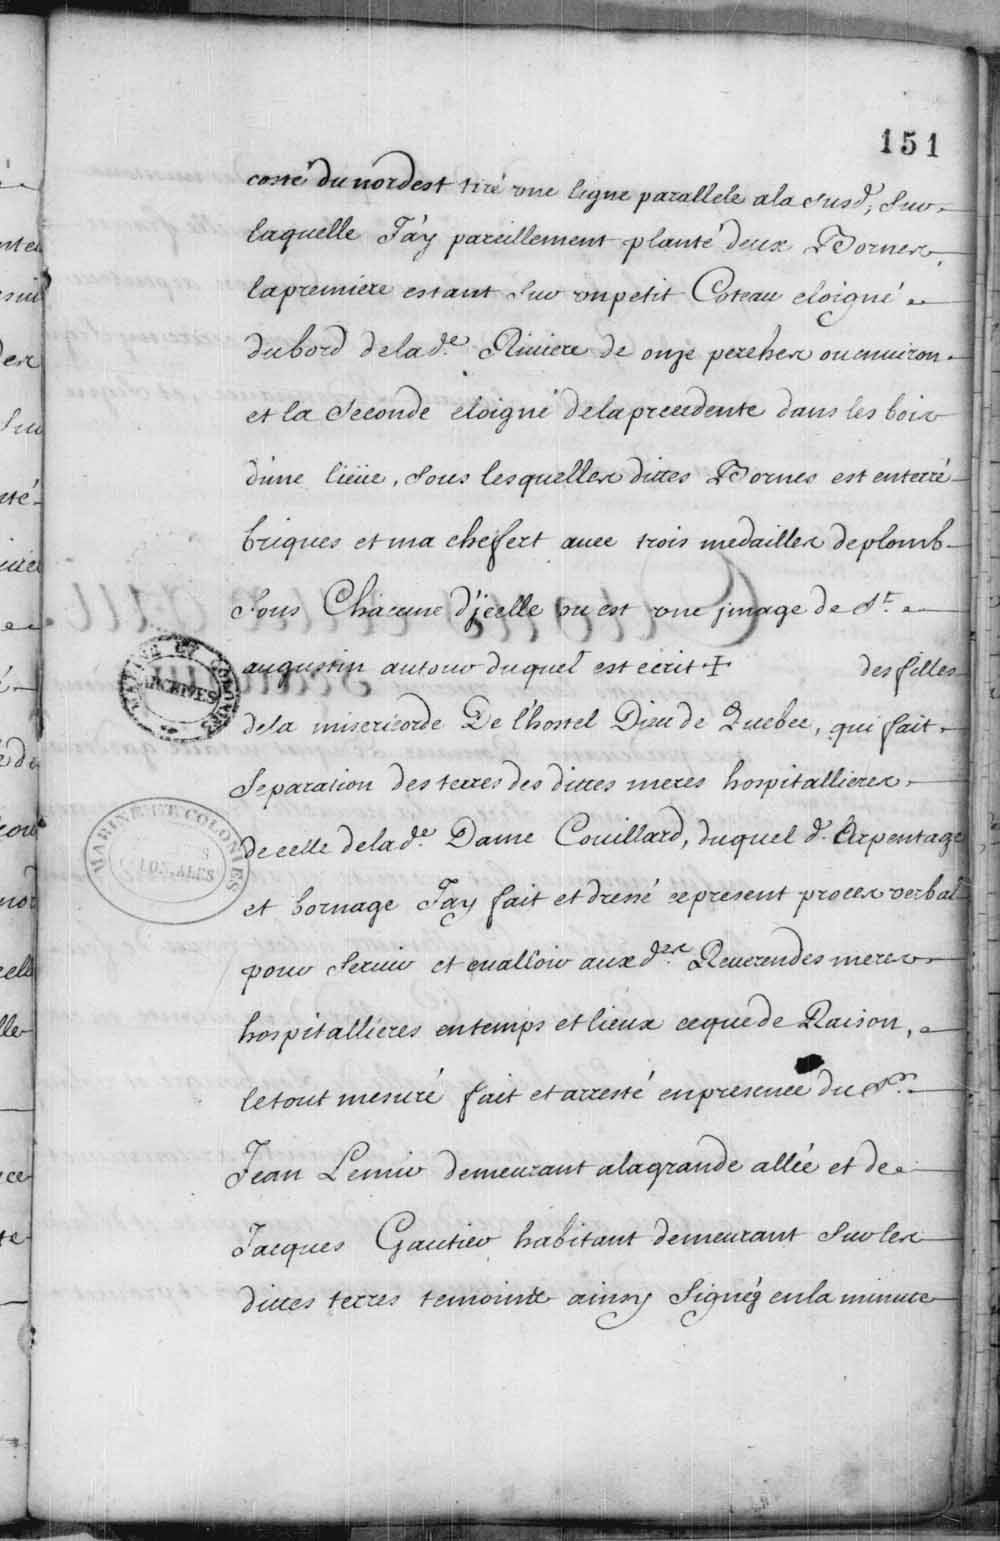 151
costé du nordest tiré une ligne parallele a la susd.e, sur
laquelle J'ay pareillement planté deux Bornes,
la premiere estant sur un petit Coteau eloigné
du bord de la d.e Riviere de onze perches ou environ
et la seconde eloigné de la precedente dans les bois
d'une lieüe, sous lesquelles dittes Bornes est enterré
briques et machefert avec trois medailles de plomb
sous Chacune d'jcelle ou est une jmage de St.
augustin autour duquel est écrit + des filles
de la misericorde De l'hostel Dieu de Quebec, qui fait
separation des terres des dittes meres hospitallieres
de celle de la d.e Dame Couillard, duquel d. Arpentage
et bornage J'ay fait et dressé ce present procés verbal
pour servir et valloir aux d.es Reverendes meres
hospitallieres en temps et lieux ce que de Raison,
le tout mesuré fait et arresté en presence du Sr.
Jean Lemir demeurant a la grande allée et de
Jacques Gautier habitant demeurant sur les
dittes terres temoins ainsy Signéz en la minute
MARINE ET COLONIES
ARCHIVES
MARINE ET COLONIES